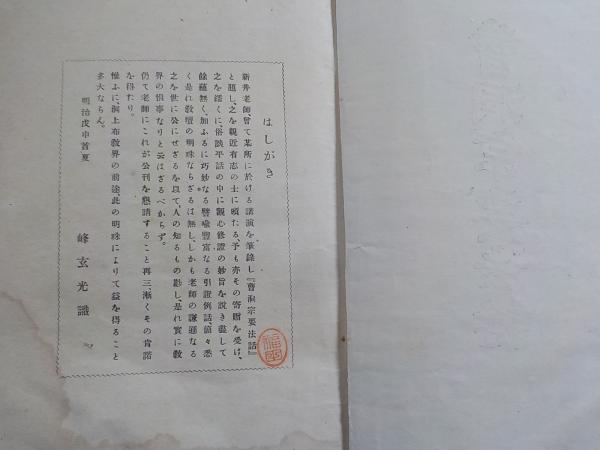 はしがき
新井老師、曾て某所に於ける講演を筆錄し『曹洞宗要法話』
と題し、之を親近有志の士に頒たる予も亦その寄贈を受け、
之を繙くに、俗談平話の中に觀心修證の妙旨を說き盡して
餘蘊無く、加ふるに巧妙なる譬喩豐富なる引證例話、節々悉
く是れ敎壇の明珠ならざるは無し、しかも老師の謙遜なる
之を世に公にせざるを以て、人の知るもの尠し、是れ實に敎
界の恨事なりと云はざるべからず。
仍て老師にこれが公刊を懇請すること再三、漸くその肯諾
を得たり。
惟ふに、洞上布敎界の前途、此の明珠によりて益を得ること
多大ならん。
明治戊申首夏
峰玄光識